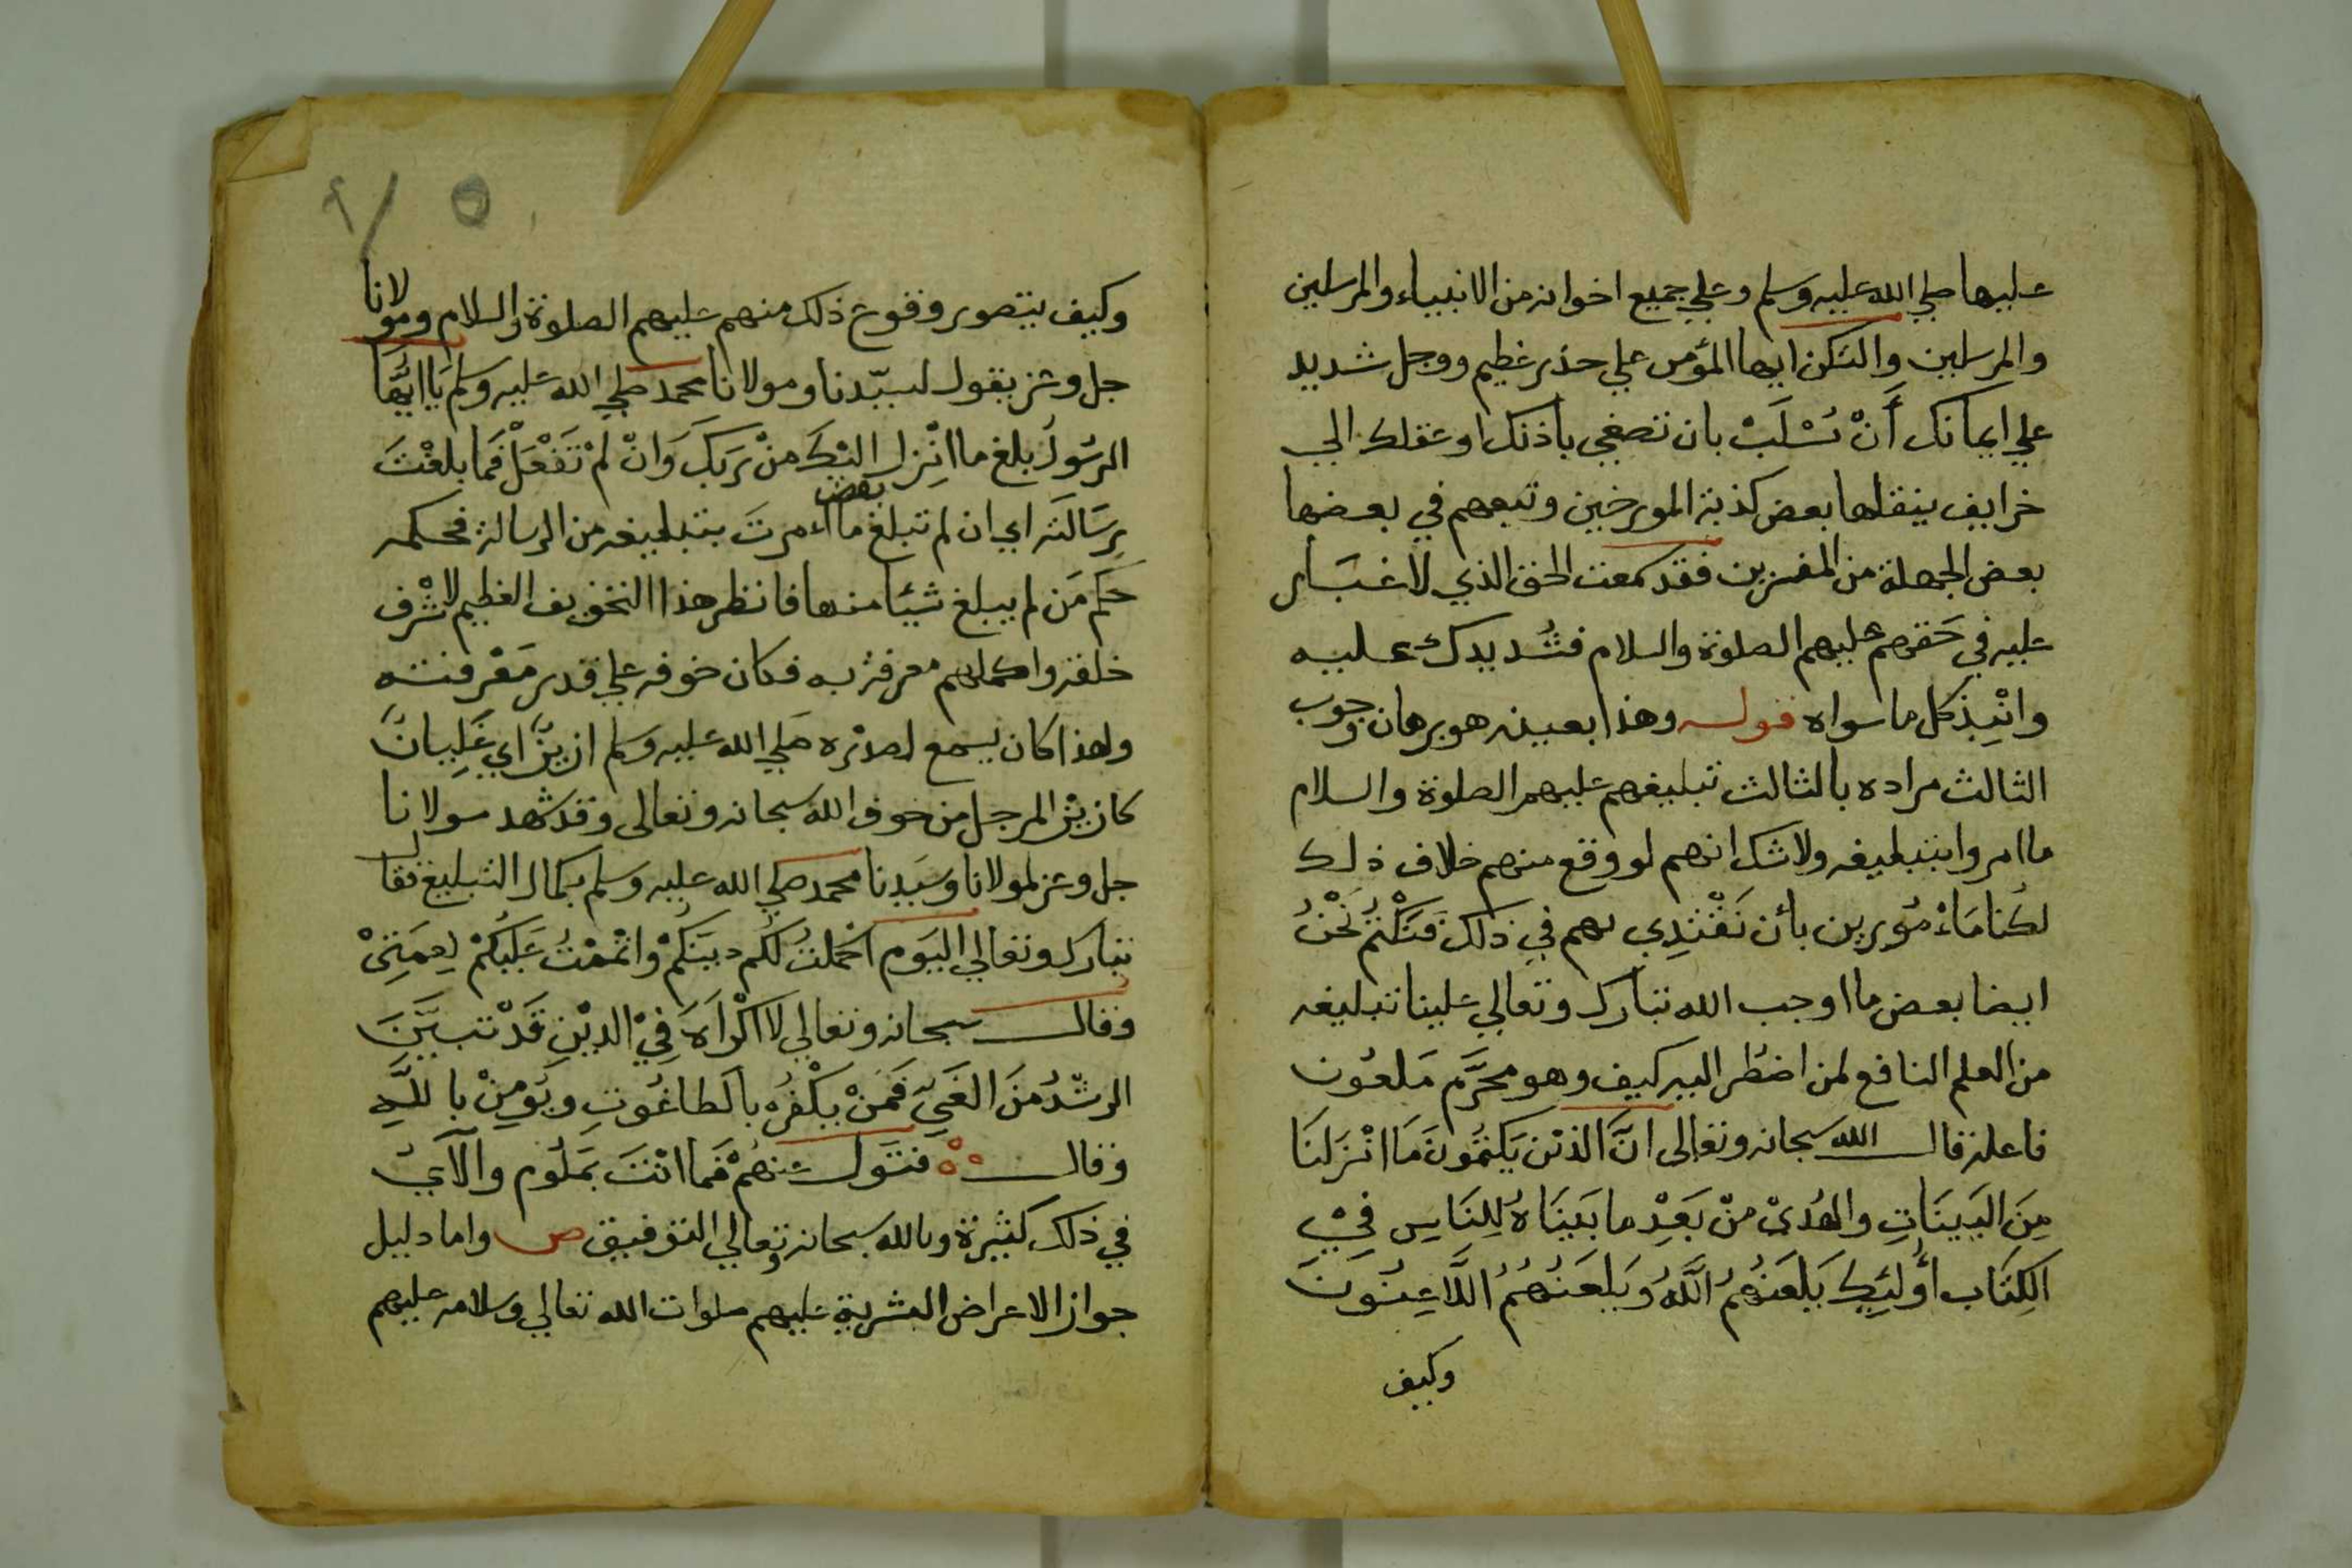 عليها صلي الله عليه وسلم وعلي جميع اخوانه من الانبياء والمرسلين
والمرسلين والتكن ايها المؤمن علي حذر عظيم ووجل شديد
علي ايمانك أَنْ تُسْلَبْ بان تصغي بأذنك او عقلك الي
خرايف ينقلها بعض كذبة المورخين وتبعهم في بعضها
بعض الجهلة من المفسرين فقد سمعت الحق الذي لا غبار
عليه في حَقهم عليهم الصلوة والسلام فشُد يدك عليه
وانْبِذ كل ما سواه قوله وهذا بعينه هو برهان وجوب
الثالث مراده بالثالث تبليغهم عليهم الصلوة والسلام
ما امروا بتبليغه ولا شك انهم لو وقع منهم خلاف ذلك
لكُنا مَاءْمُورين بأن نَقْتَدِي بهم في ذلك فَنَكْتُمُ نَحْنُ
ايضا بعض ما اوجب الله تبارك وتعالي علينا تبليغه
من العلم النافع لمن اضطُر اليه كيف وهو محرَّم مَلعُون
فاعله قال الله سبحانه وتعالى انَّ الذيْن يَكتمُونَ مَا انْزَلنَا
مِنَ البَينَاتِ والهُدىْ منْ بَعْدِ ما بَيَنَاهُ لِلنَاسِ فِيْ
الكِتَاب أُولَئِكَ يَلعَنُهُمُ اللَّهُ وَيَلعَنُهُمُ اللَّاعِنُونَ
وكيف
٥ ٩/
وكيف يتصور وقوع ذلك منهم عليهم الصلوة والسلام ومولانا
جل وعز يقول لسيّدنا ومولانا محمد صلي الله عليه وسلم يَا ايُّهَا
الرسُولُ بلغ ما انْزِل اليْكَ منْ رَبكَ وَانْ لمْ تَفْعَلْ فَمَا بلغْتَ
رِسَالَتَه اي ان لم تبلغ بعض ما اُمرتَ بتبليغه من الرسالة فحكمه
حكم مَن لم يبلغ شيئا منها فانظر هذا التخويف العظيم لاشْرف
خلقه واكملهم معرفة به فكان خوفه علي قدر مَعْرفته
ولهذا كان يسمع لصدْره صَلي الله عليه وسلم ازيزٌ اي غَلِيانٌ
كازيْز المرجل من خوف الله سبحانه وتعالى وقد شهد مولانا
جل وعز لمولانا وسَيدنا محمد صلي الله عليه وسلم بكمال التبليغ فقال
تبارك وتعالي اليَوم اكْملتُ لكُم دينَكُمْ واتْممْتُ عَلَيكُمْ نِعمَتِىْ
وقال سبحانه وتعالي لا اكْرَاهَ فِيْ الديْنِ قَدْ تبَيَّنَ
الرشّدُ منَ الغَيّ فَمَنْ يكْفرُ بالطاغُوتِ وَيُومِنْ باللَّهِ
وقال فتَوَل عنهُمْ فمَا انْتَ بمَلُوم والآيُ
في ذلك كثيرة وبالله سبحانه وتعالي التوفيق ص واما دليل
جواز الاعراض البشرية عليهم صلوات الله تعالي وسلامه عليهم